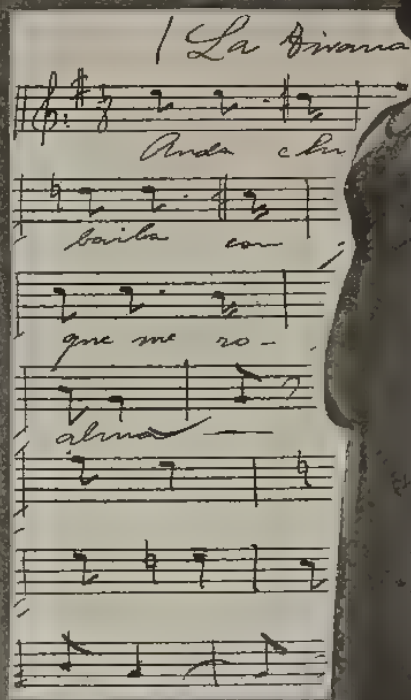 1 La Divana
Anda chu
baila con
que me ro-
alma